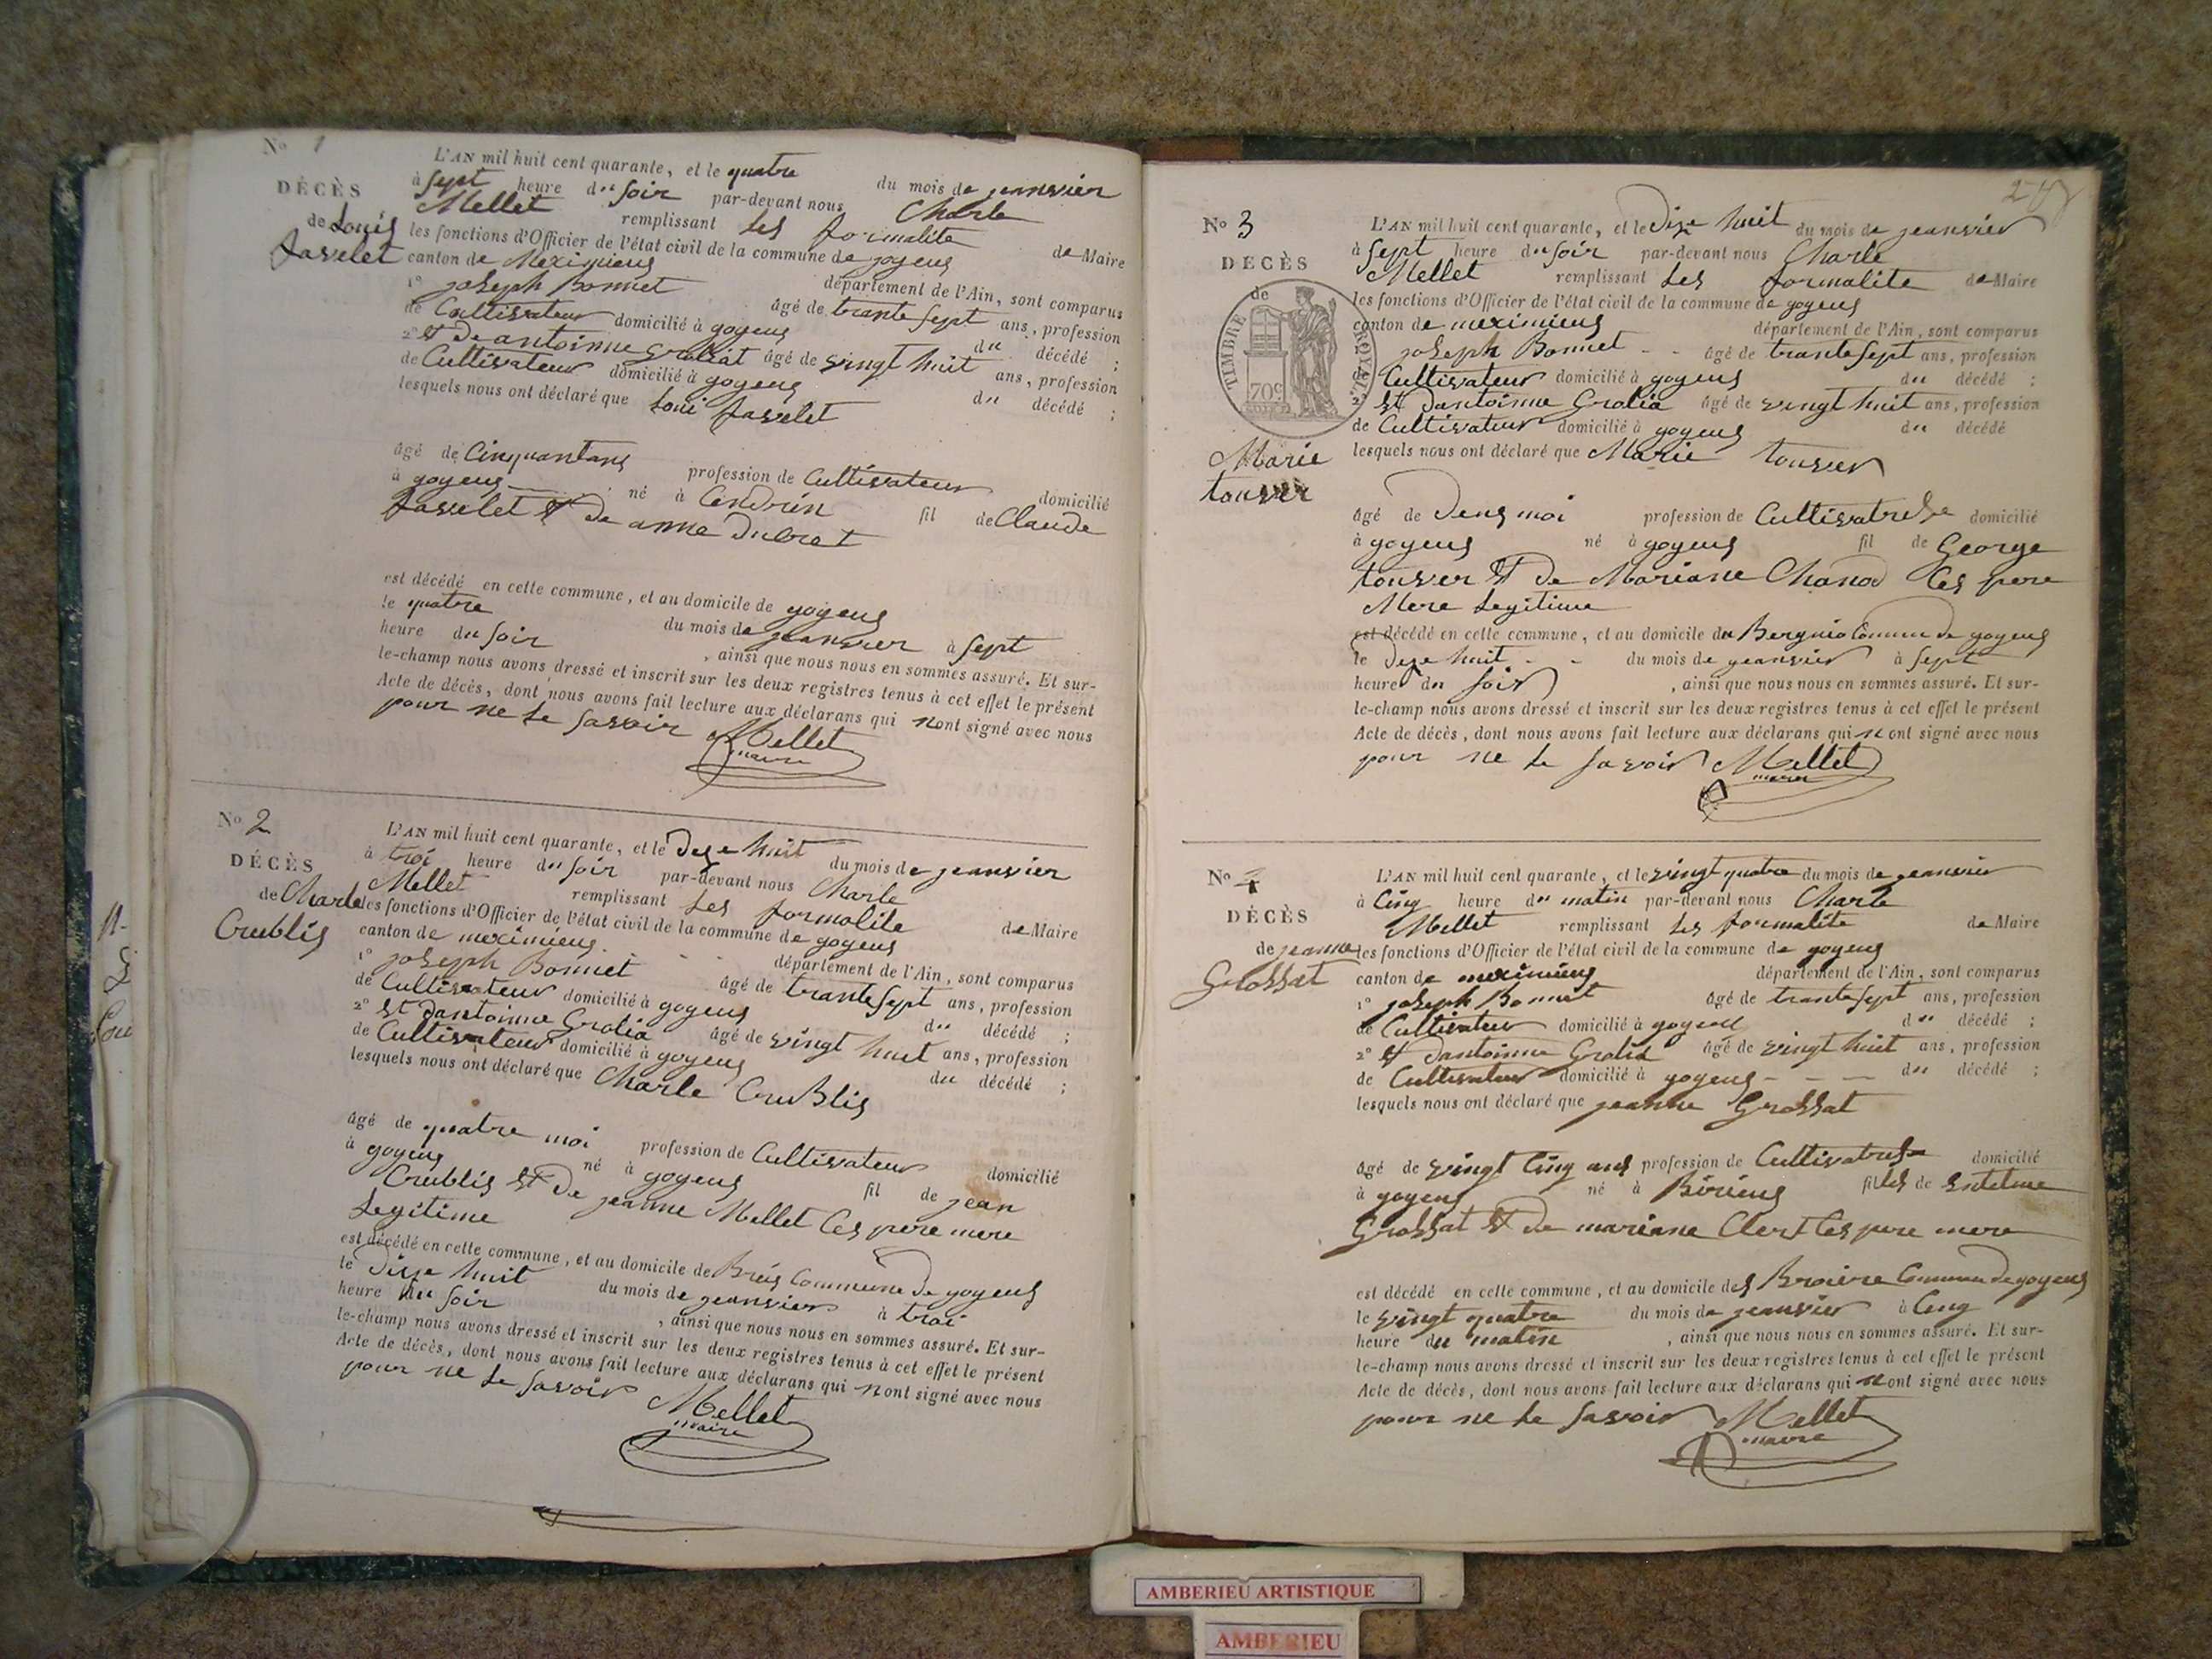 No 1
L'AN mil huit cent quarante, et le quatre du mois de jeansvier
DÉCÈS
à sept heure du soir par-devant nous Charle
Mellet remplissant les formalite de Maire
de Louis
les fonctions d'Officier de l'état civil de la commune de joyeus
Javelet
canton de Meximieus département de l'Ain, sont comparus
1° joseph Bonnet âgé de trante sept ans, profession
de Cultivateur domicilié à goyeus du décédé ;
2° et de antoinne groliat âgé de vingt huit ans, profession
de Cultivateur domicilié à goyeus du décédé ;
lesquels nous ont déclaré que Loui Javelet
âgé de Cinquantans profession de Cultivateur domicilié
à goyeus né à Cendrin fil de Claude
Javelet et de anne Dubret
est décédé en cette commune, et au domicile de goyeus
le quatre du mois de jeansvier à sept
heure du soir, ainsi que nous nous en sommes assuré. Et sur-
le-champ nous avons dressé et inscrit sur les deux registres tenus à cet effet le présent
Acte de décès, dont nous avons fait lecture aux déclarans qui nont signé avec nous
pour ne le savoir Mellet
maire
No 2
L'AN mil huit cent quarante, et le dize huit du mois de jeansvier
DÉCÈS
à troi heure du soir par-devant nous Charle
de Charle
Mellet remplissant les formalite de Maire
Crublis
les fonctions d'Officier de l'état civil de la commune de goyeus
canton de meximieus département de l'Ain, sont comparus
1° joseph Bonnet âgé de trante sept ans, profession
de Cultivateur domicilié à goyeus du décédé ;
2° et dantoinne Grolia âgé de vingt huit ans, profession
de Cultivateur domicilié à goyeus du décédé ;
lesquels nous ont déclaré que Charle Crublis
âgé de quatre moi profession de Cultivateur domicilié
à goyeus né à goyeus fil de jean
Crublis et de jeanne Mellet Ces pere mere
Legitime
est décédé en cette commune, et au domicile de Commune de goyeus
le dize huit du mois de jeansvier à troi
heure du soir, ainsi que nous nous en sommes assuré. Et sur-
le-champ nous avons dressé et inscrit sur les deux registres tenus à cet effet le présent
Acte de décès, dont nous avons fait lecture aux déclarans qui nont signé avec nous
pour ne le savoir Mellet
maire
No 3
L'AN mil huit cent quarante, et le dize huit du mois de jeansvier
DÉCÈS
à sept heure du soir par-devant nous Charle
Mellet remplissant les formalite de Maire
de
les fonctions d'Officier de l'état civil de la commune de goyeus
TIMBRE ROYAL
70c
canton de meximieus département de l'Ain, sont comparus
joseph Bonnet âgé de trante sept ans, profession
Cultivateur domicilié à goyeus du décédé ;
2° et dantoinne Grolia âgé de vingt huit ans, profession
de Cultivateur domicilié à goyeus du décédé
Marie
touver
lesquels nous ont déclaré que Marie touver
âgé de deus moi profession de Cultivatrese domicilié
à goyeus né à goyeus fil de George
touver et de Mariane Chanod Ces pere
Mere Legitime
est décédé en cette commune, et au domicile du Commune de goyeus
le dize huit du mois de jeansvier à sept
heure du soir, ainsi que nous nous en sommes assuré. Et sur-
le-champ nous avons dressé et inscrit sur les deux registres tenus à cet effet le présent
Acte de décès, dont nous avons fait lecture aux déclarans qui nont signé avec nous
pour ne le savoir Mellet
maire
No 4
L'AN mil huit cent quarante, et le vingt quatre du mois de jeansvier
DÉCÈS
à Cinq heure du matin par-devant nous Charle
Mellet remplissant les formalite de Maire
de jeanne
Grossat
les fonctions d'Officier de l'état civil de la commune de goyeus
canton de meximieus département de l'Ain, sont comparus
1° joseph Bonnet âgé de trante sept ans, profession
de Cultivateur domicilié à goyeus du décédé ;
2° et dantoinne Grolia âgé de vingt huit ans, profession
de Cultivateur domicilié à goyeus du décédé ;
lesquels nous ont déclaré que jeanne Grossat
âgé de vingt Cinq ans profession de Cultivatrese domicilié
à goyeus né à Birieus filles de
Grossat et de mariane Clert Ces pere mere
est décédé en cette commune, et au domicile des Commune de goyeus
le vingt quatre du mois de jeansvier à Cinq
heure du matin, ainsi que nous nous en sommes assuré. Et sur-
le-champ nous avons dressé et inscrit sur les deux registres tenus à cet effet le présent
Acte de décès, dont nous avons fait lecture aux déclarans qui nont signé avec nous
pour ne le savoir Mellet
maire
AMBERIEU ARTISTIQUE
AMBERIEU